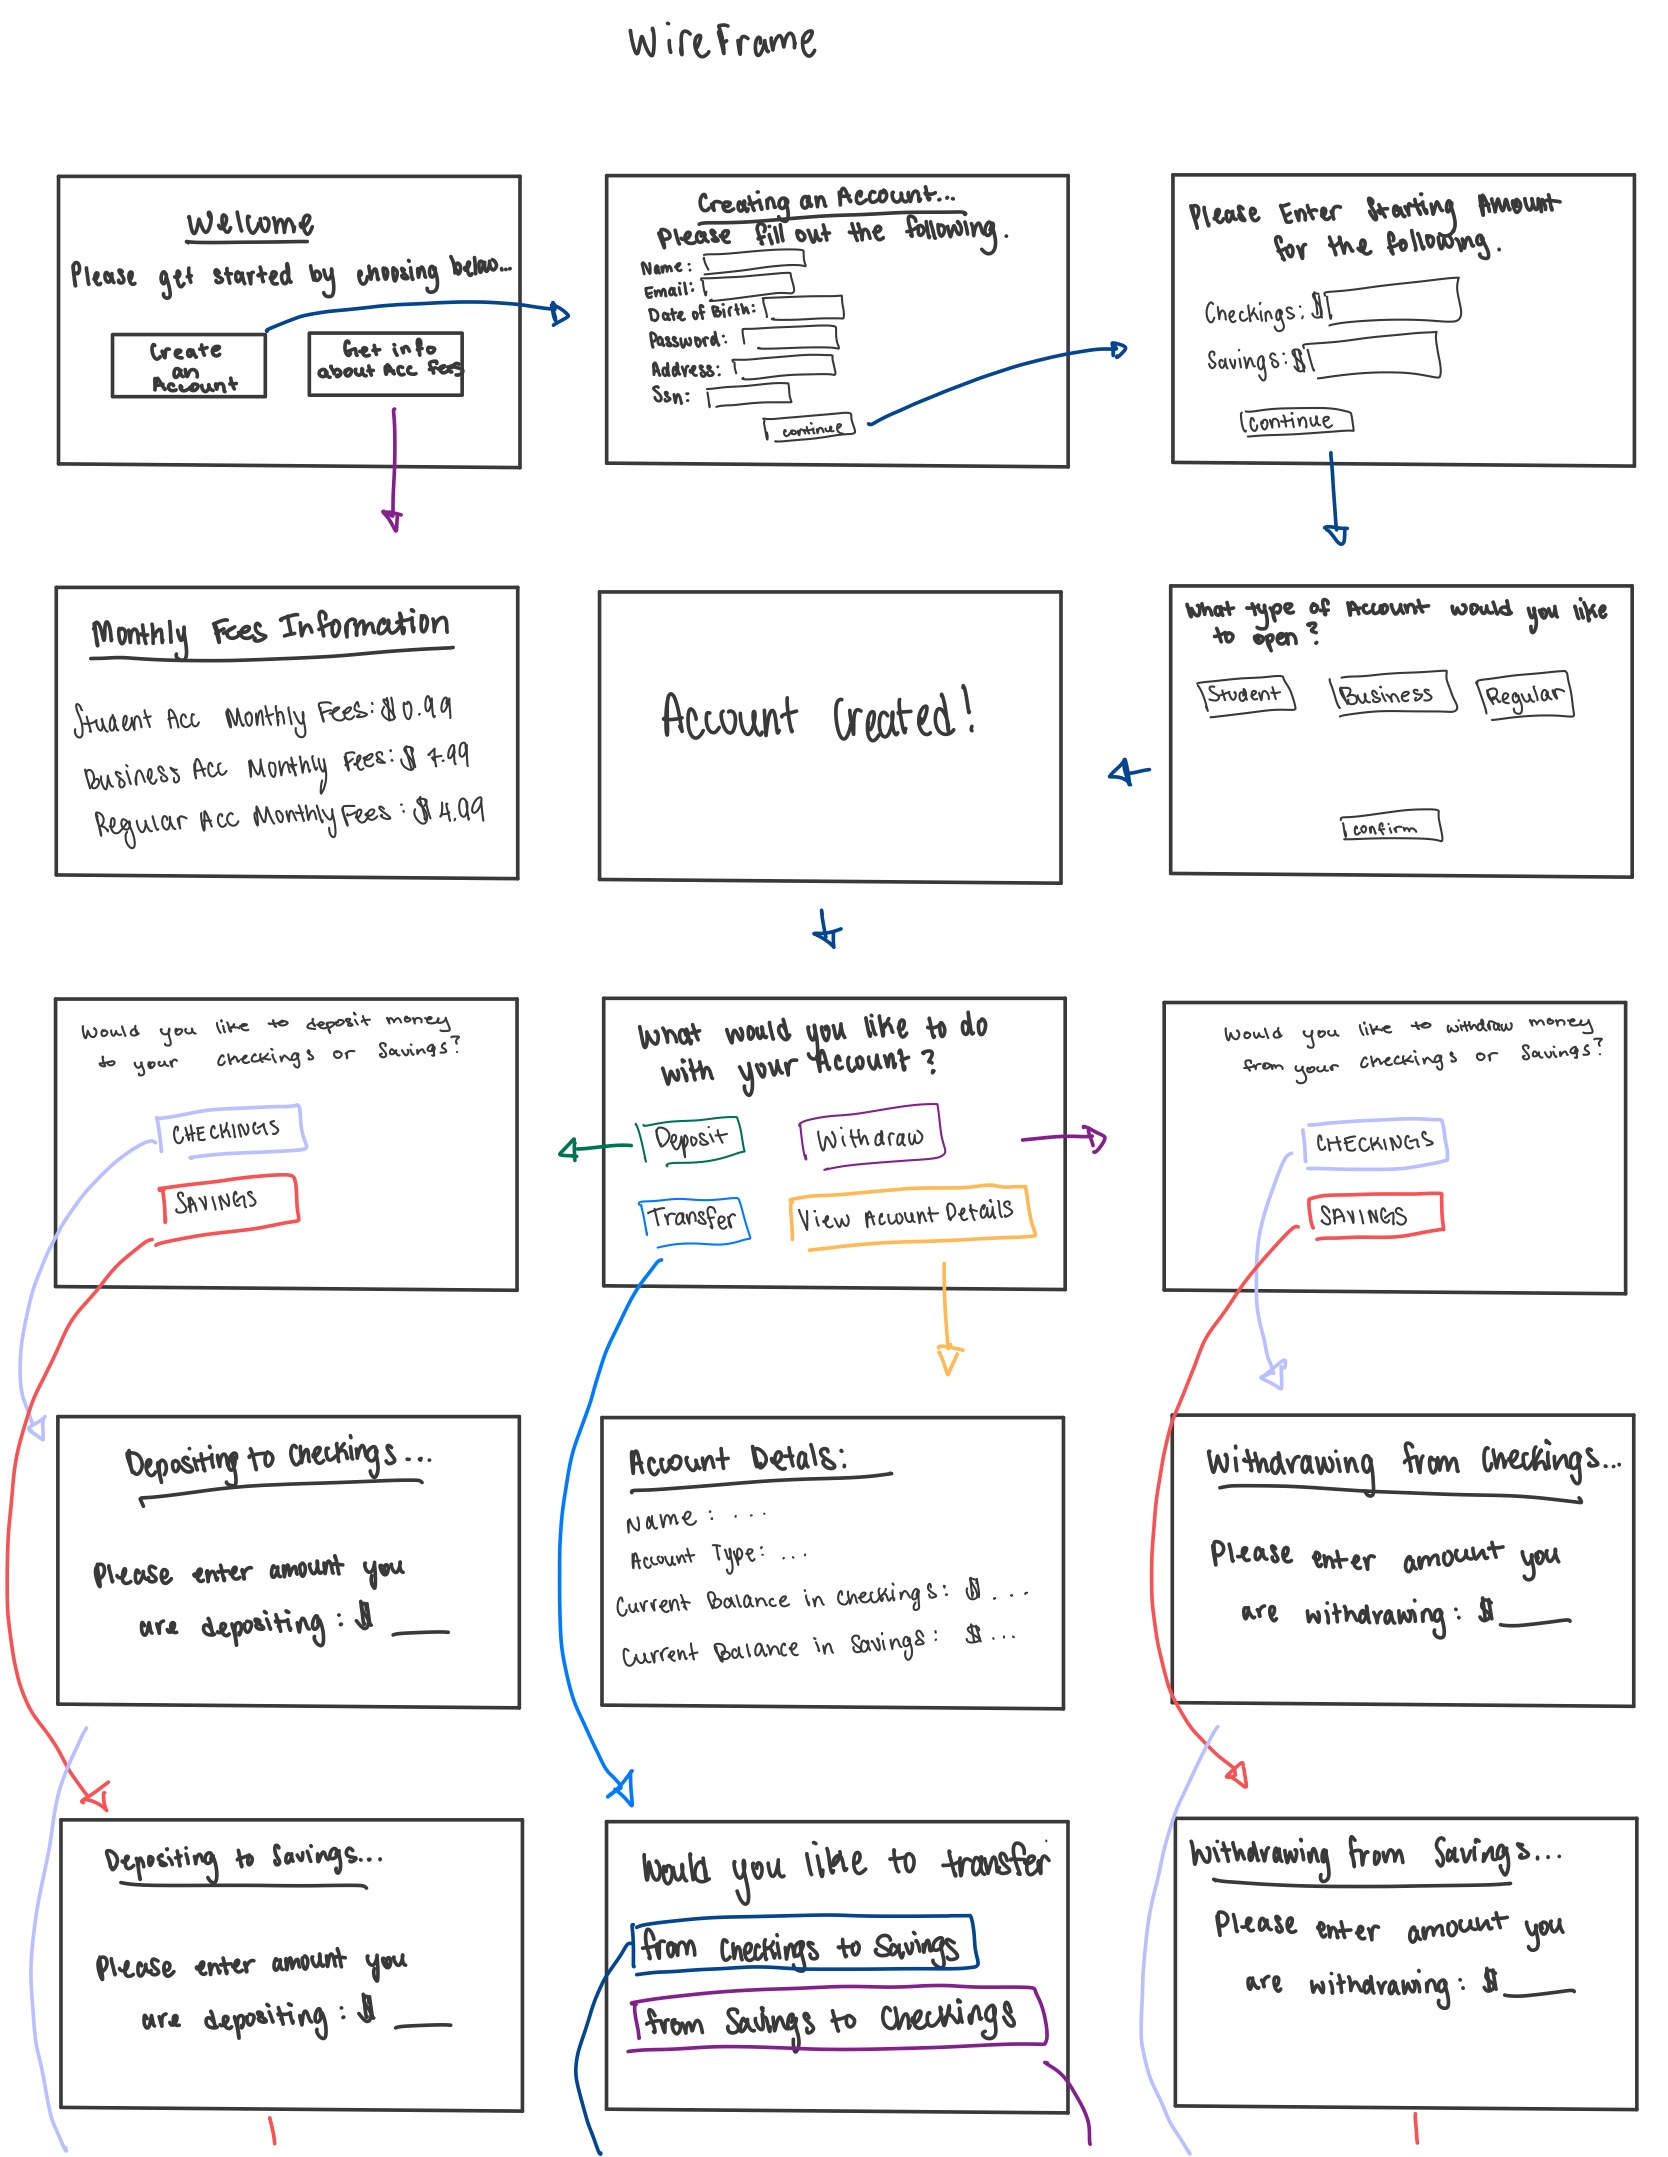 WireFrame
Welcome
Please get started by choosing below...
Create
an
Account
Get info
about Acc fees
Creating an Account...
Please fill out the following.
Name:
Email:
Date of Birth:
Password:
Address:
Ssn:
continue
Please Enter Starting Amount
for the following.
Checkings: $
Savings: $
continue
Monthly Fees Information
Student Acc Monthly Fees: $0.99
Business Acc Monthly Fees: $ 7.99
Regular Acc Monthly Fees: $ 4.99
Account Created!
What type of Account would you like
to open?
Student
Business
Regular
confirm
Would you like to deposit money
to your checkings or Savings?
CHECKINGS
SAVINGS
What would you like to do
with your Account?
Deposit
Withdraw
Transfer
View Account Details
Would you like to withdraw money
from your checkings or Savings?
CHECKINGS
SAVINGS
Depositing to Checkings...
Please enter amount you
are depositing: $ ___
Account Detals:
Name: ...
Account Type: ...
Current Balance in Checkings: $ ...
Current Balance in Savings: $ ...
Withdrawing from Checkings...
Please enter amount you
are withdrawing: $ ___
Depositing to Savings...
Please enter amount you
are depositing: $ ___
Would you like to transfer
from Checkings to Savings
from Savings to Checkings
Withdrawing from Savings...
Please enter amount you
are withdrawing: $ ___